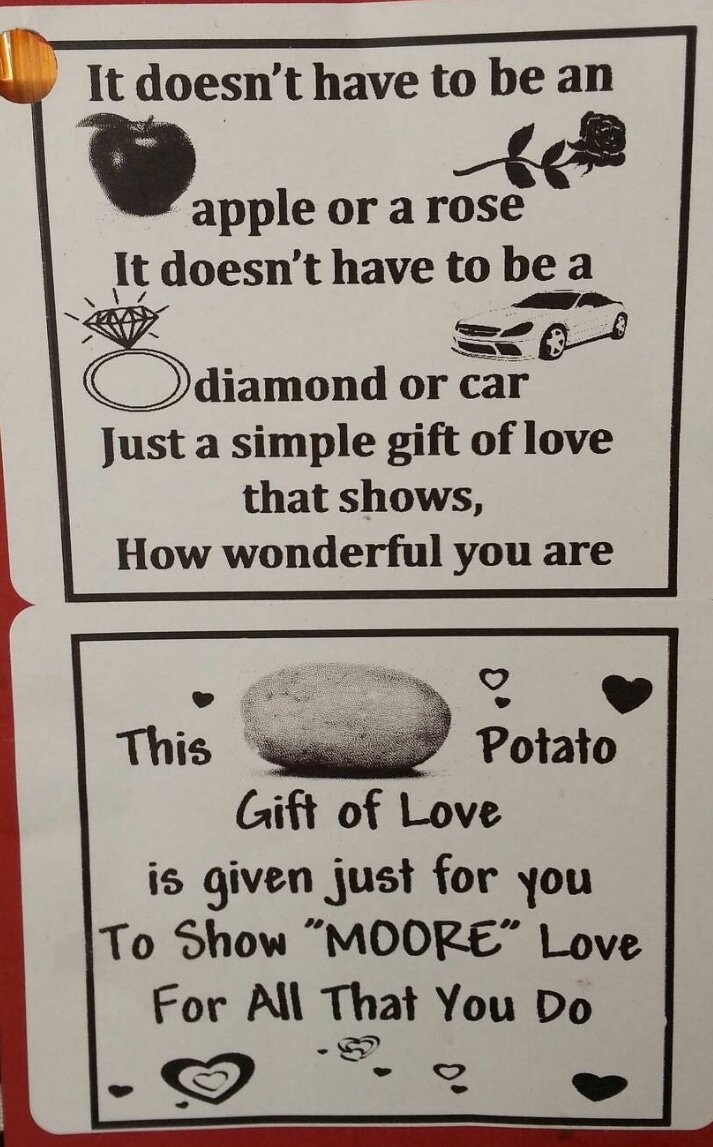 It doesn't have to be an
apple or a rose
It doesn't have to be a
diamond or car
Just a simple gift of love
that shows,
How wonderful you are
This Potato
Gift of Love
is given just for you
To Show "MOORE" Love
For All That You Do